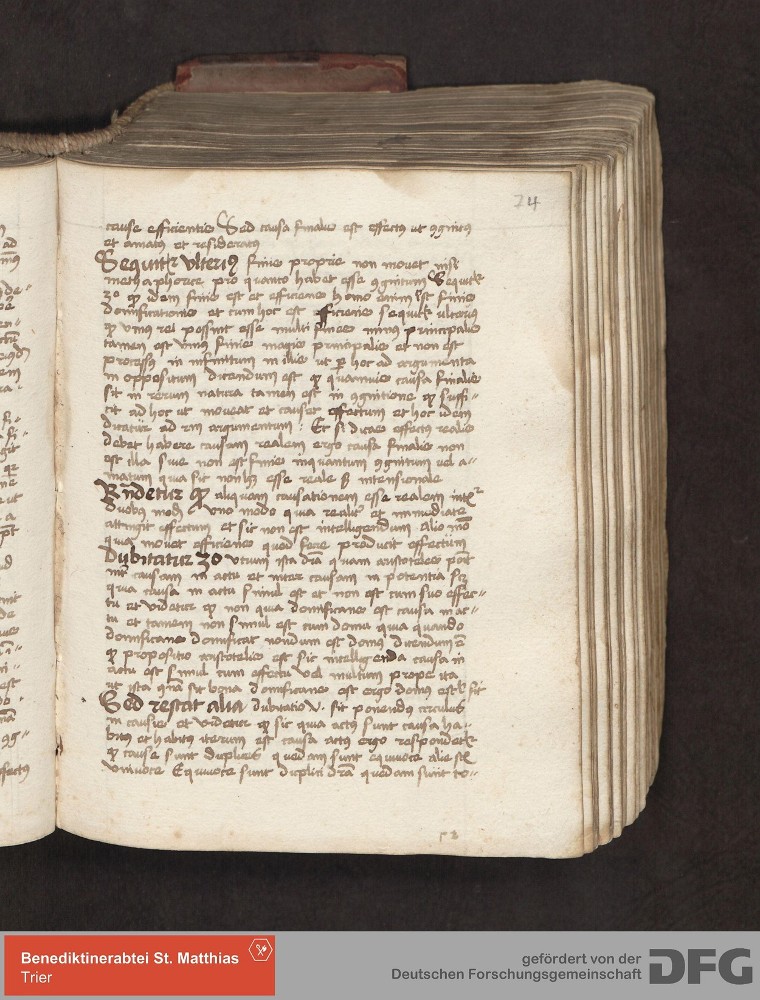 24
cause efficientis Sed causa finalis est effectus ut cognitus
et amatus et desideratus
Sequitur ulterius finis proprie non movet nisi
methaphorice pro quanto habet esse cognitum Sequitur
3º quod idem finis est et efficiens homo enim est finis
domificationis et cum hoc est efficiens sequitur ulterius
quod unius rei possint esse multi fines minus principales
tamen est unus finis magis principalis et non est
processus in infinitum in illis ut per hoc ad argumenta
in oppositum dicendum est quod quamvis causa finalis
sit in rerum natura tamen est in cognitione quod suffi-
cit ad hoc ut moveat et causet effectum et hoc idem
dicatur ad argumentum Et si dicas effectus realis
debet habere causam realem ergo causa finalis non
est illa sive non est finis inquantum cognitum vel a-
matum quia sic non habet esse reale sed intensionale
Respondetur quod aliquam causationem esse realem
duobus modis uno modo quia realiter et immediate
attingit effectum et sic non est intelligendum Alio modo
quia movet efficiens quod fere producit effectum
Dubitatur 3o utrum ista differentia quam aristoteles ponit
inter causam in actu et inter causam in potentia scilicet
quia causa in actu simul est et non est cum suo effec-
tu et videtur quod non quia domificans est causa in ac-
tu et tamen non simul est cum domu quia quando
domificans domificat nondum est domus dicendum est
quod propositio aristotelis est sic intelligenda causa in
actu est simul cum effectu vel multum prope ita
ut ista consequentia sit bona domificans est ergo domus est vel fit
Sed restat alia dubitatio V. sit ponendus circulus
in causis et videtur quod sic quia actus sunt causa ha-
bitus et habitus iterum est causa actus ergo respondetur
quod cause sunt duplices quedam sunt equivoce alie sunt
univoce Equivoce sunt duplici differentia quedam sunt to-
Benediktinerabtei St. Matthias
Trier
gefördert von der
Deutschen Forschungsgemeinschaft
DFG